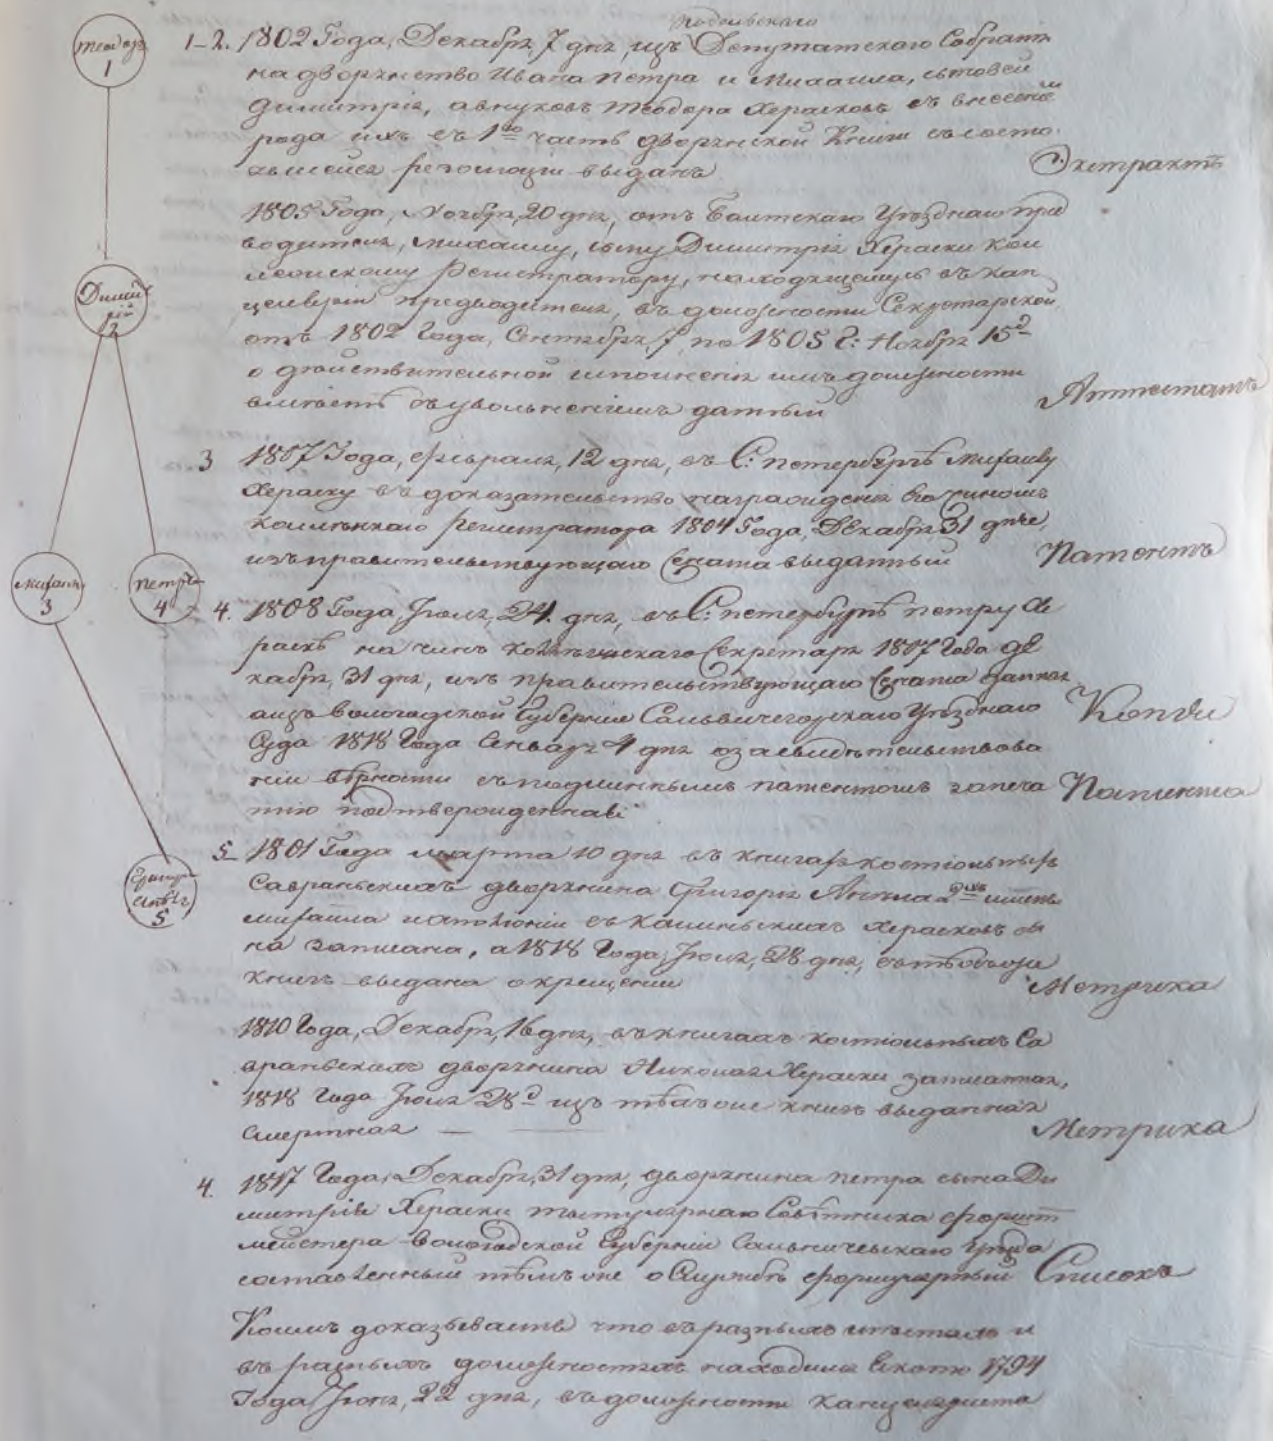 Теодор
1
Димит
рій
2
Михаил
3
Петръ
4
5
Подольскаго
1–2. 1802 Года, Декабря, 7 дня, изъ Депутатскаго Собранія
на дворянство Ивана Петра и Михаила, сыновей
Димитрія, а внуковъ Теодора Херасковъ съ внесеніемъ
рода ихъ въ 1ю часть дворянской Книги съ состо
явшейся резолюціи выданъ
Экстрактъ
1805 Года, Ноября, 20 дня, отъ Балтскаго Уѣзднаго пред
водителя, Михаилу, сыну Димитрія Хераски Кол
лежскому Регистратору, находящемуся въ кан
целяріи предводителя, въ должности Секретарской
отъ 1802 Года, Сентября, 1, по 1805 г: Ноября 15д
о дѣйствительной исполненія имъ должности
вмѣстѣ съ увольненіемъ данный
Аттестатъ
3 1807 Года, февраля, 12 дня, въ С: петербургѣ Михаилу
Хераску въ доказательство награжденія Его чиномъ
коллежскаго Регистратора 1804 Года, Декабря 31 дня
изъ правительствующаго Сената выданный
Патентъ
4. 1808 Года, Іюля, 24 дня, въ С: петербургѣ петру Хе
раскѣ на чинъ коллежскаго Секретаря 1807 Года де
кабря, 31 дня, изъ правительствующаго Сената данная
а изъ Вологодской Губерніи Сольвычегодскаго Уѣзднаго
Суда 1818 Года Генваря 4 дня о засвидѣтельствова
ніи вѣрности съ подлиннымъ патентомъ за печа
тію подтвержденнаві
Копіи
Патента
5 1801 Года марта 10 дня въ книгахъ костіольныхъ
Савраньскихъ дворянина Григорія Аннина 2хъ именъ
Михаила и Аполоніи съ Калиньскихъ Херасковъ сы
на записана, а 1818 Года, Іюля, 28 дня, съ тѣхъ же
книгъ выдана о крещеніи
Метрика
1810 Года, Декабря, 16 дня, въ книгахъ костіольныхъ Са
враньскихъ дворянина Николая Хераски записанная,
1818 Года Іюля 28д изъ тѣхъ же книгъ выданная
Смертная
Метрика
4. 1817 Года, Декабря, 31 дня, дворянина петра сына Ди
митрія Хераски титулярнаго Совѣтника форшт
мейстера Вологодской Губерніи Сольвычегскаго Уѣзда
составленный тѣмъ же о Службѣ формулярный Списокъ
Коимъ доказываетъ что въ разныхъ мѣстахъ и
въ разныхъ должностяхъ находился Екото 1794
Года Іюня, 22 дня, въ должности канцеляриста